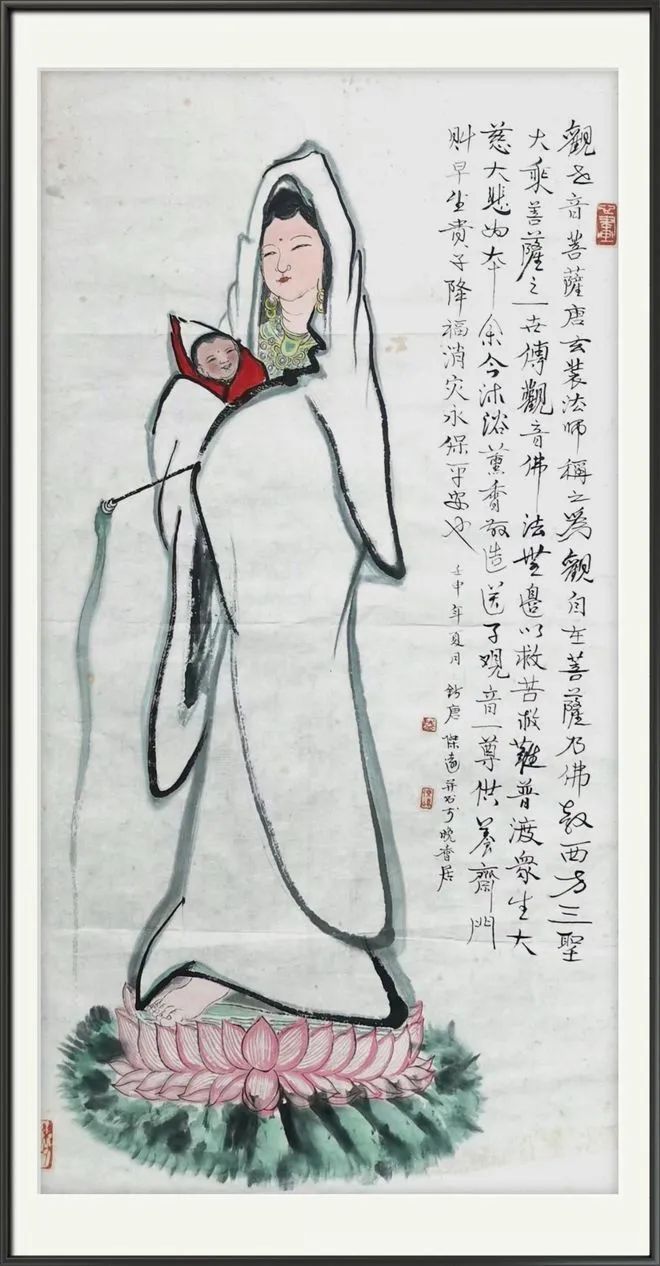 觀世音菩薩唐玄裝法師稱之為觀自在菩薩乃佛教西方三聖
大乘菩薩之一世傳觀音佛法無邊以救苦救難普渡眾生大
慈大悲為本余今沐浴薰香敬造送子觀音一尊供養齋門
財早生貴子降福消灾永保平安也
壬申年夏月 錢唐 保 并書于晚香居